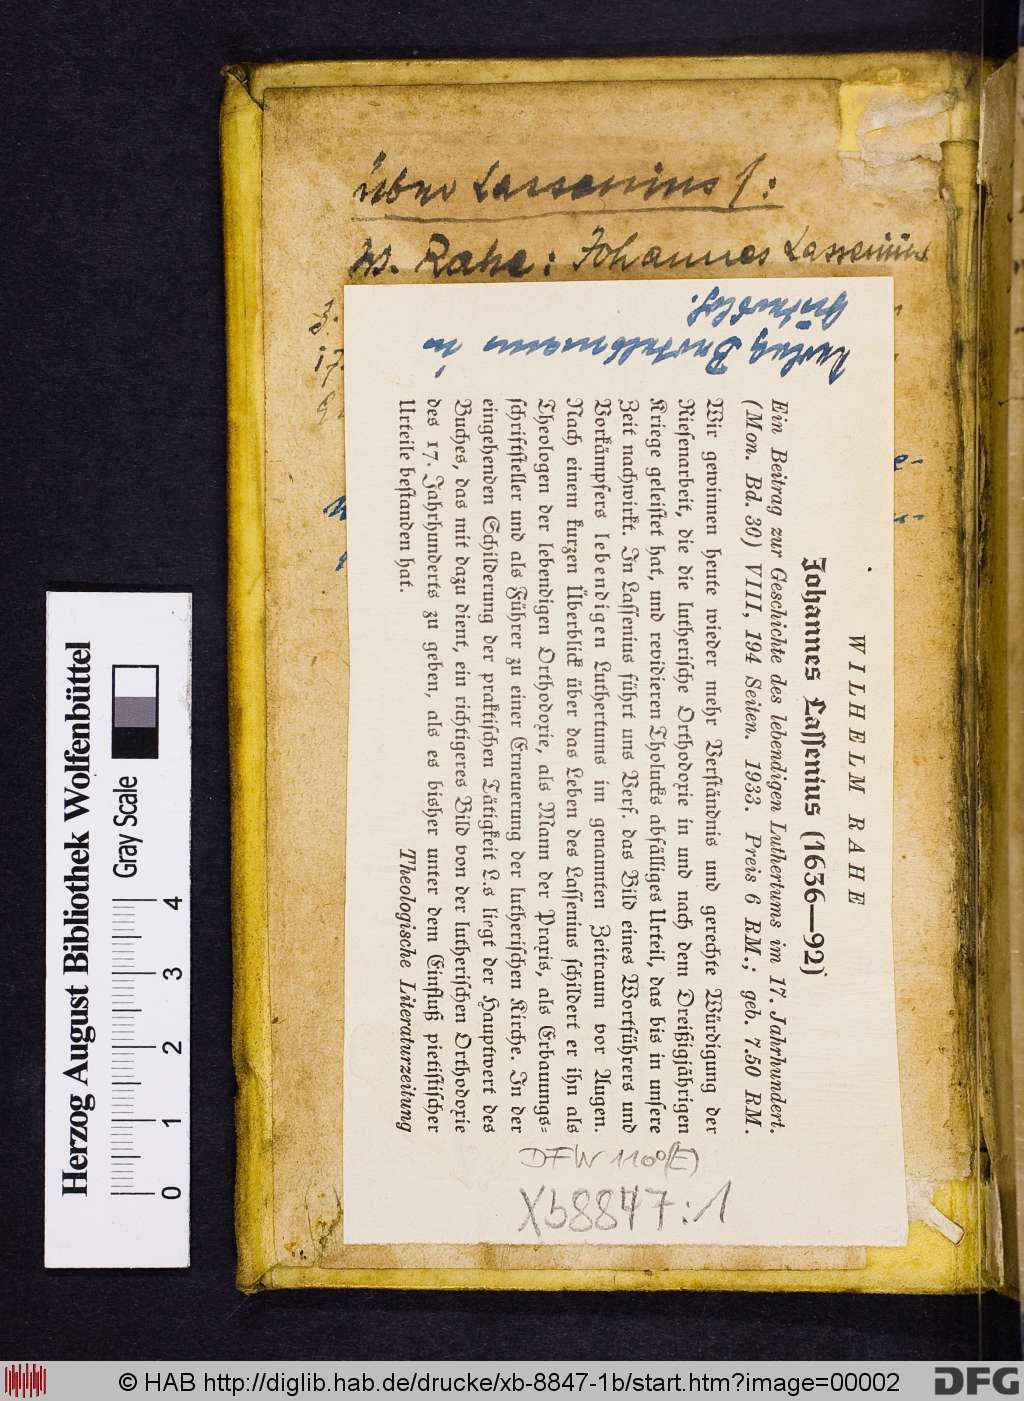 über Lassenius s:
W. Rahe: Johannes Lassenius
17.
Verlag Bertelsmann in
Gütersloh.
WILHELM RAHE
Johannes Laſſenius (1636—92)
Ein Beitrag zur Geschichte des lebendigen Luthertums im 17. Jahrhundert.
(Mon. Bd. 30) VIII, 194 Seiten. 1933. Preis 6 RM.; geb. 7.50 RM.
Wir gewinnen heute wieder mehr Verſtändnis und gerechte Würdigung der
Rieſenarbeit, die die lutheriſche Orthodoxie in und nach dem Dreißigjährigen
Kriege geleiſtet hat, und revidieren Tholucks abfälliges Urteil, das bis in unſere
Zeit nachwirkt. In Laſſenius führt uns Verf. das Bild eines Wortführers und
Vorkämpfers lebendigen Luthertums im genannten Zeitraum vor Augen.
Nach einem kurzen Überblick über das Leben des Laſſenius ſchildert er ihn als
Theologen der lebendigen Orthodoxie, als Mann der Praxis, als Erbauungs-
ſchriftſteller und als Führer zu einer Erneuerung der lutheriſchen Kirche. In der
eingehenden Schilderung der praktiſchen Tätigkeit L.s liegt der Hauptwert des
Buches, das mit dazu dient, ein richtigeres Bild von der lutheriſchen Orthodoxie
des 17. Jahrhunderts zu geben, als es bisher unter dem Einfluß pietiſtiſcher
Urteile beſtanden hat.
Theologische Literaturzeitung
DFW 1100 (E)
Xb8847:1
Herzog August Bibliothek Wolfenbüttel
Gray Scale
0 1 2 3 4
© HAB http://diglib.hab.de/drucke/xb-8847-1b/start.htm?image=00002
DFG